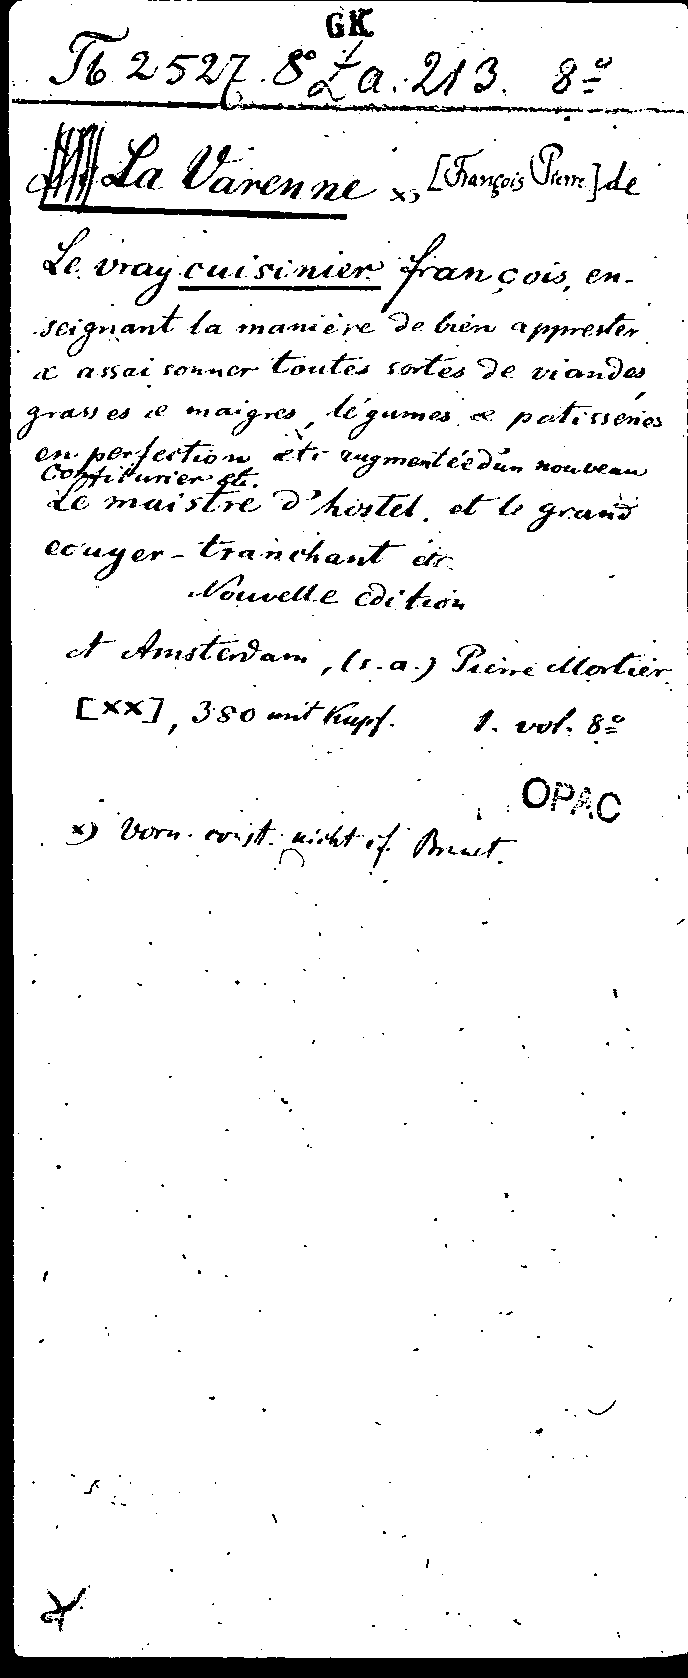 GK
Tb 2527. 8° La. 213. 8º
La Varenne x) [François Pierre] de
Le vray cuisinier françois, en-
seignant la manière de bien apprester
& assaisonner toutes sortes de viandes,
grasses & maigres, légumes & patisseries
en perfection etc augmentée d'un nouveau
Confiturier etc.
Le maistre d'hostel, et le grand
ecuyer-tranchant etc.
Nouvelle edition
A Amsterdam, (s.a.) Pierre Mortier.
[XX], 380 mit Kupf. 1. vol. 8º
OPAC
x) Vorn. nicht cf. Brunet.